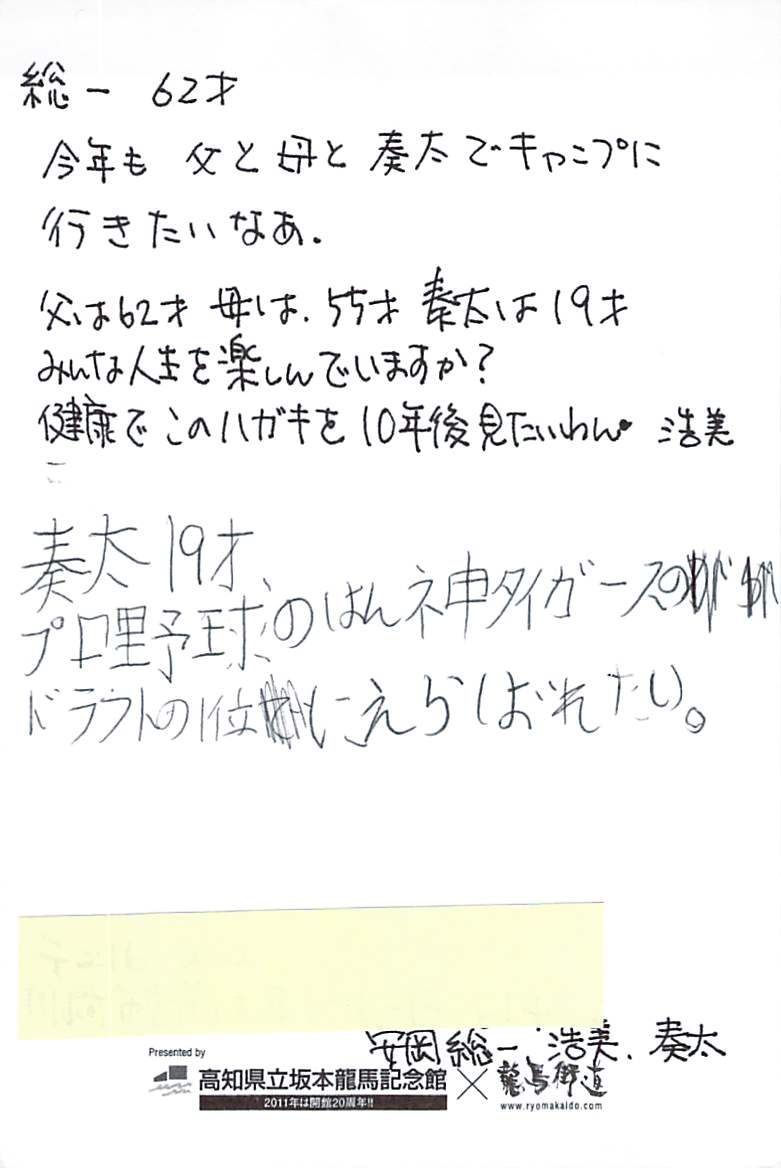 総一 62才
今年も 父と母と 奏太でキャンプに
行きたいなあ.
父は62才 母は、55才 奏太は19才
みんな人生を楽しんでいますか?
健康でこのハガキを10年後見たいわん 浩美
奏太19才、
プロ野球のはん神タイガースの
ドラフトの1位にえらばれたい。
安岡総一 浩美、奏太
Presented by
高知県立坂本龍馬記念館 × 龍馬街道
2011年は開館20周年!!
www.ryomakaido.com